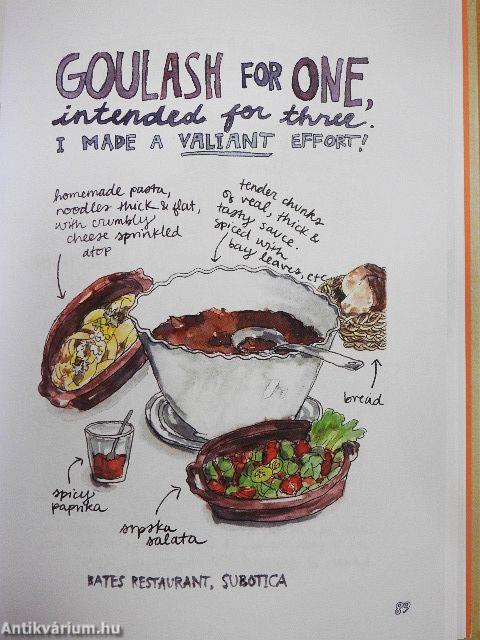 GOULASH FOR ONE,
intended for three.
I MADE A VALIANT EFFORT!
homemade pasta,
noodles thick & flat,
with crumbly
cheese sprinkled
atop
tender chunks
of veal, thick &
tasty sauce.
spiced with
bay leaves, etc.
bread
spicy
paprika
srpska
salata
BATES RESTAURANT, SUBOTICA
89
Antikvárium.hu